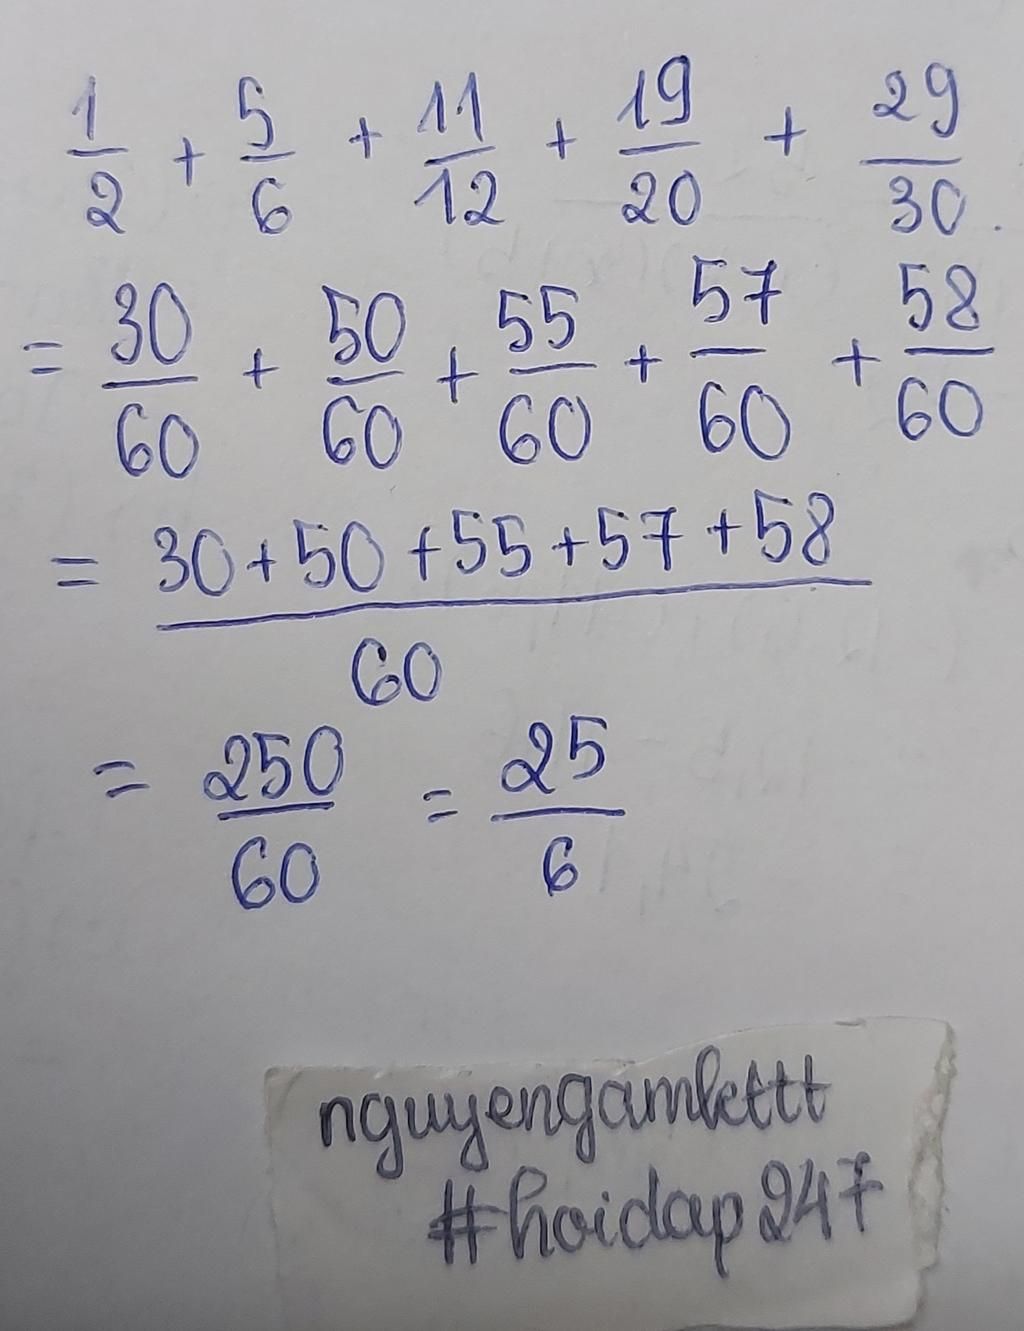 1/2 + 5/6 + 11/12 + 19/20 + 29/30.
= 30/60 + 50/60 + 55/60 + 57/60 + 58/60
= 30+50+55+57+58/60
= 250/60 = 25/6
nguyengamlettt
#hoidap247